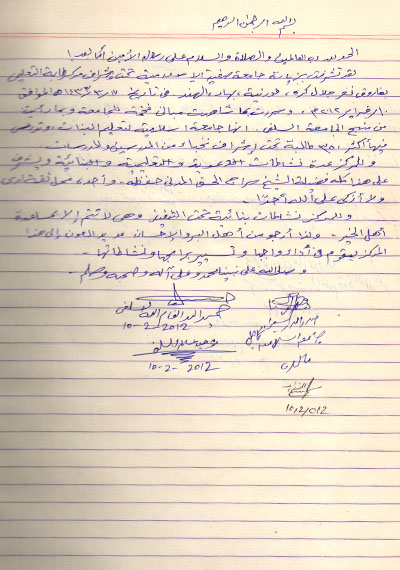 بسم الله الرحمن الرحيم
الحمد لله رب العالمين والصلاة والسلام على رسوله الأمين أما بعد!
لقد تشرفت بزيارة جامعة صفية الإسلامية تحت إشراف مركز التعليمي
بفاروق نغر جلال كره، فورنية، بهار، الهند في تاريخ هـ الموافق
١٠ فبراير ٢٠١٢م، وسررت بما شاهدت مباني فخمة للجامعة وبما
من منهج الجامعة السلف. إنها جامعة إسلامية لتعليم البنات، وتدرس
فيها أكثر ٣٨١ طالبة تحت إشراف نخبة من المدرسين والمدرسات.
وللمركز عدة نشاطات الدعوية والتعليمية والبنائية ويشرف
على هذا كله فضيلة الشيخ سراج الحق المدني حفظه الله،
ولا أزكي على الله أحدًا.
وللمركز نشاطات بنائية تحت التنفيذ وهي لا تتم إلا بمساعدة
أهل الخير. ولذا أرجو من أهل البر والإحسان مد يد العون إلى هذا
المركز ليقوم في أداء واجبها وتسيير برامجها ونشاطاتها.
وصلى الله على نبينا محمد وعلى آله وصحبه وسلم.
10-2-2012
10-2-2012
10/2/012